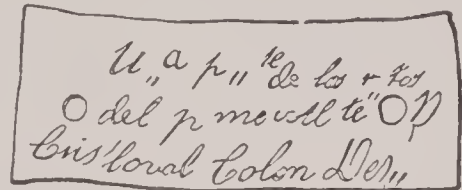 U,,a p,,te de los r tos
O del p mer Al te" O D
Cristoval Colon Des,,